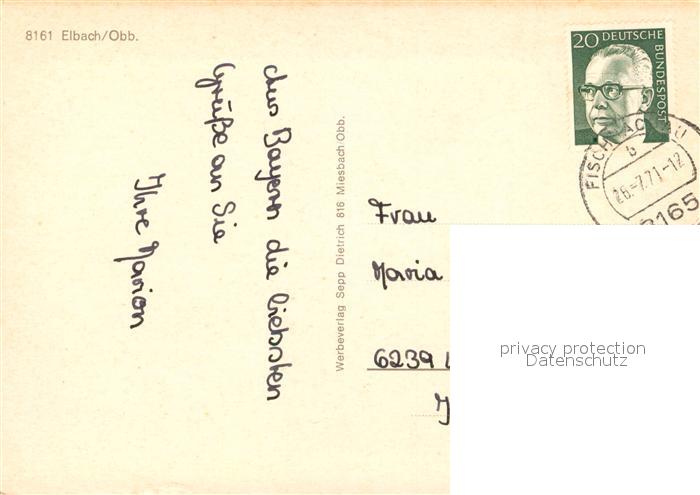 8161 Elbach/Obb.
20 DEUTSCHE
BUNDESPOST
FISCHBACHAU
b
26.-7.71-12
8165
Aus Bayern die liebsten
Grüße an Sie
Ihre Marion
Werbeverlag Sepp Dietrich 816 Miesbach/Obb.
Frau
Maria
6239
privacy protection
Datenschutz